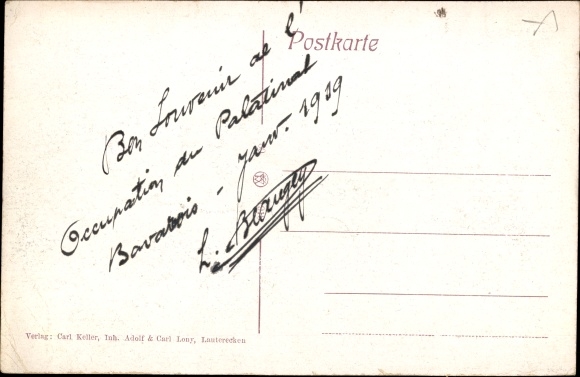 Postkarte
Bon Souvenir de l'
Occupation du Palatinat
Bavarois - Janv. 1919
L.
Verlag: Carl Keller, Inh. Adolf & Carl Lony, Lauterecken